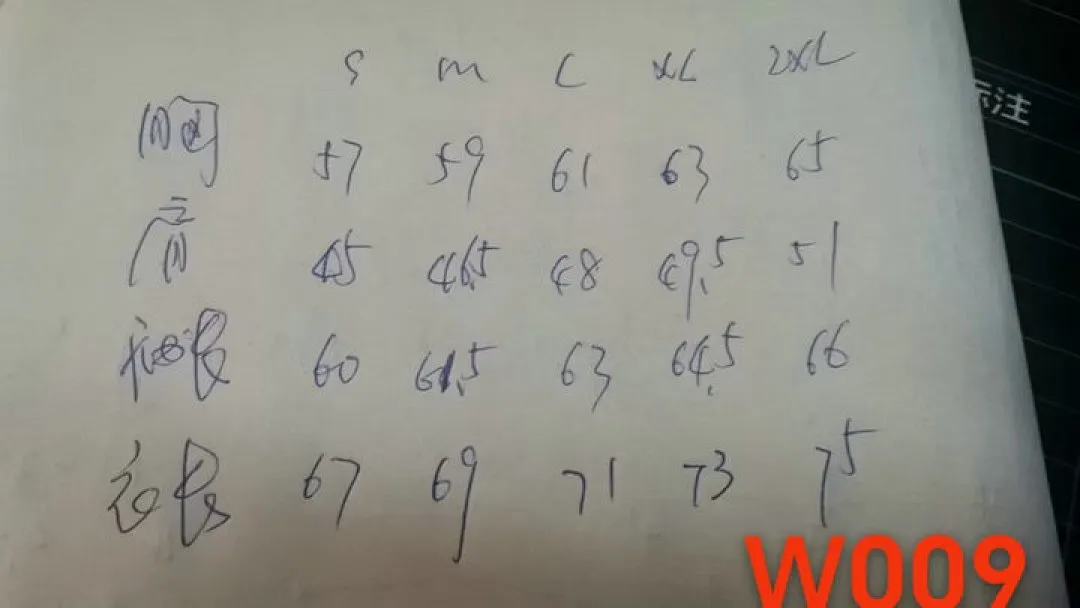 S M L XL 2XL
标注
胸 57 59 61 63 65
肩 45 46.5 48 49.5 51
袖长 60 61.5 63 64.5 66
衣长 67 69 71 73 75
W009